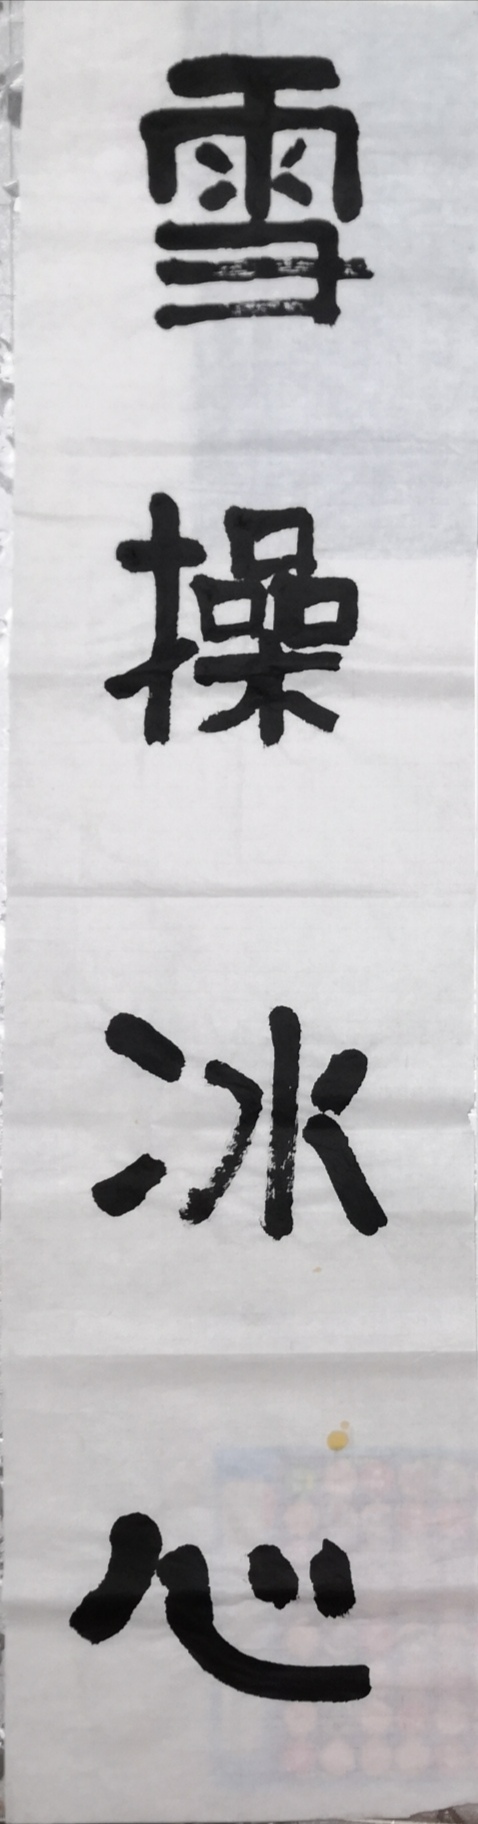 雪操冰心